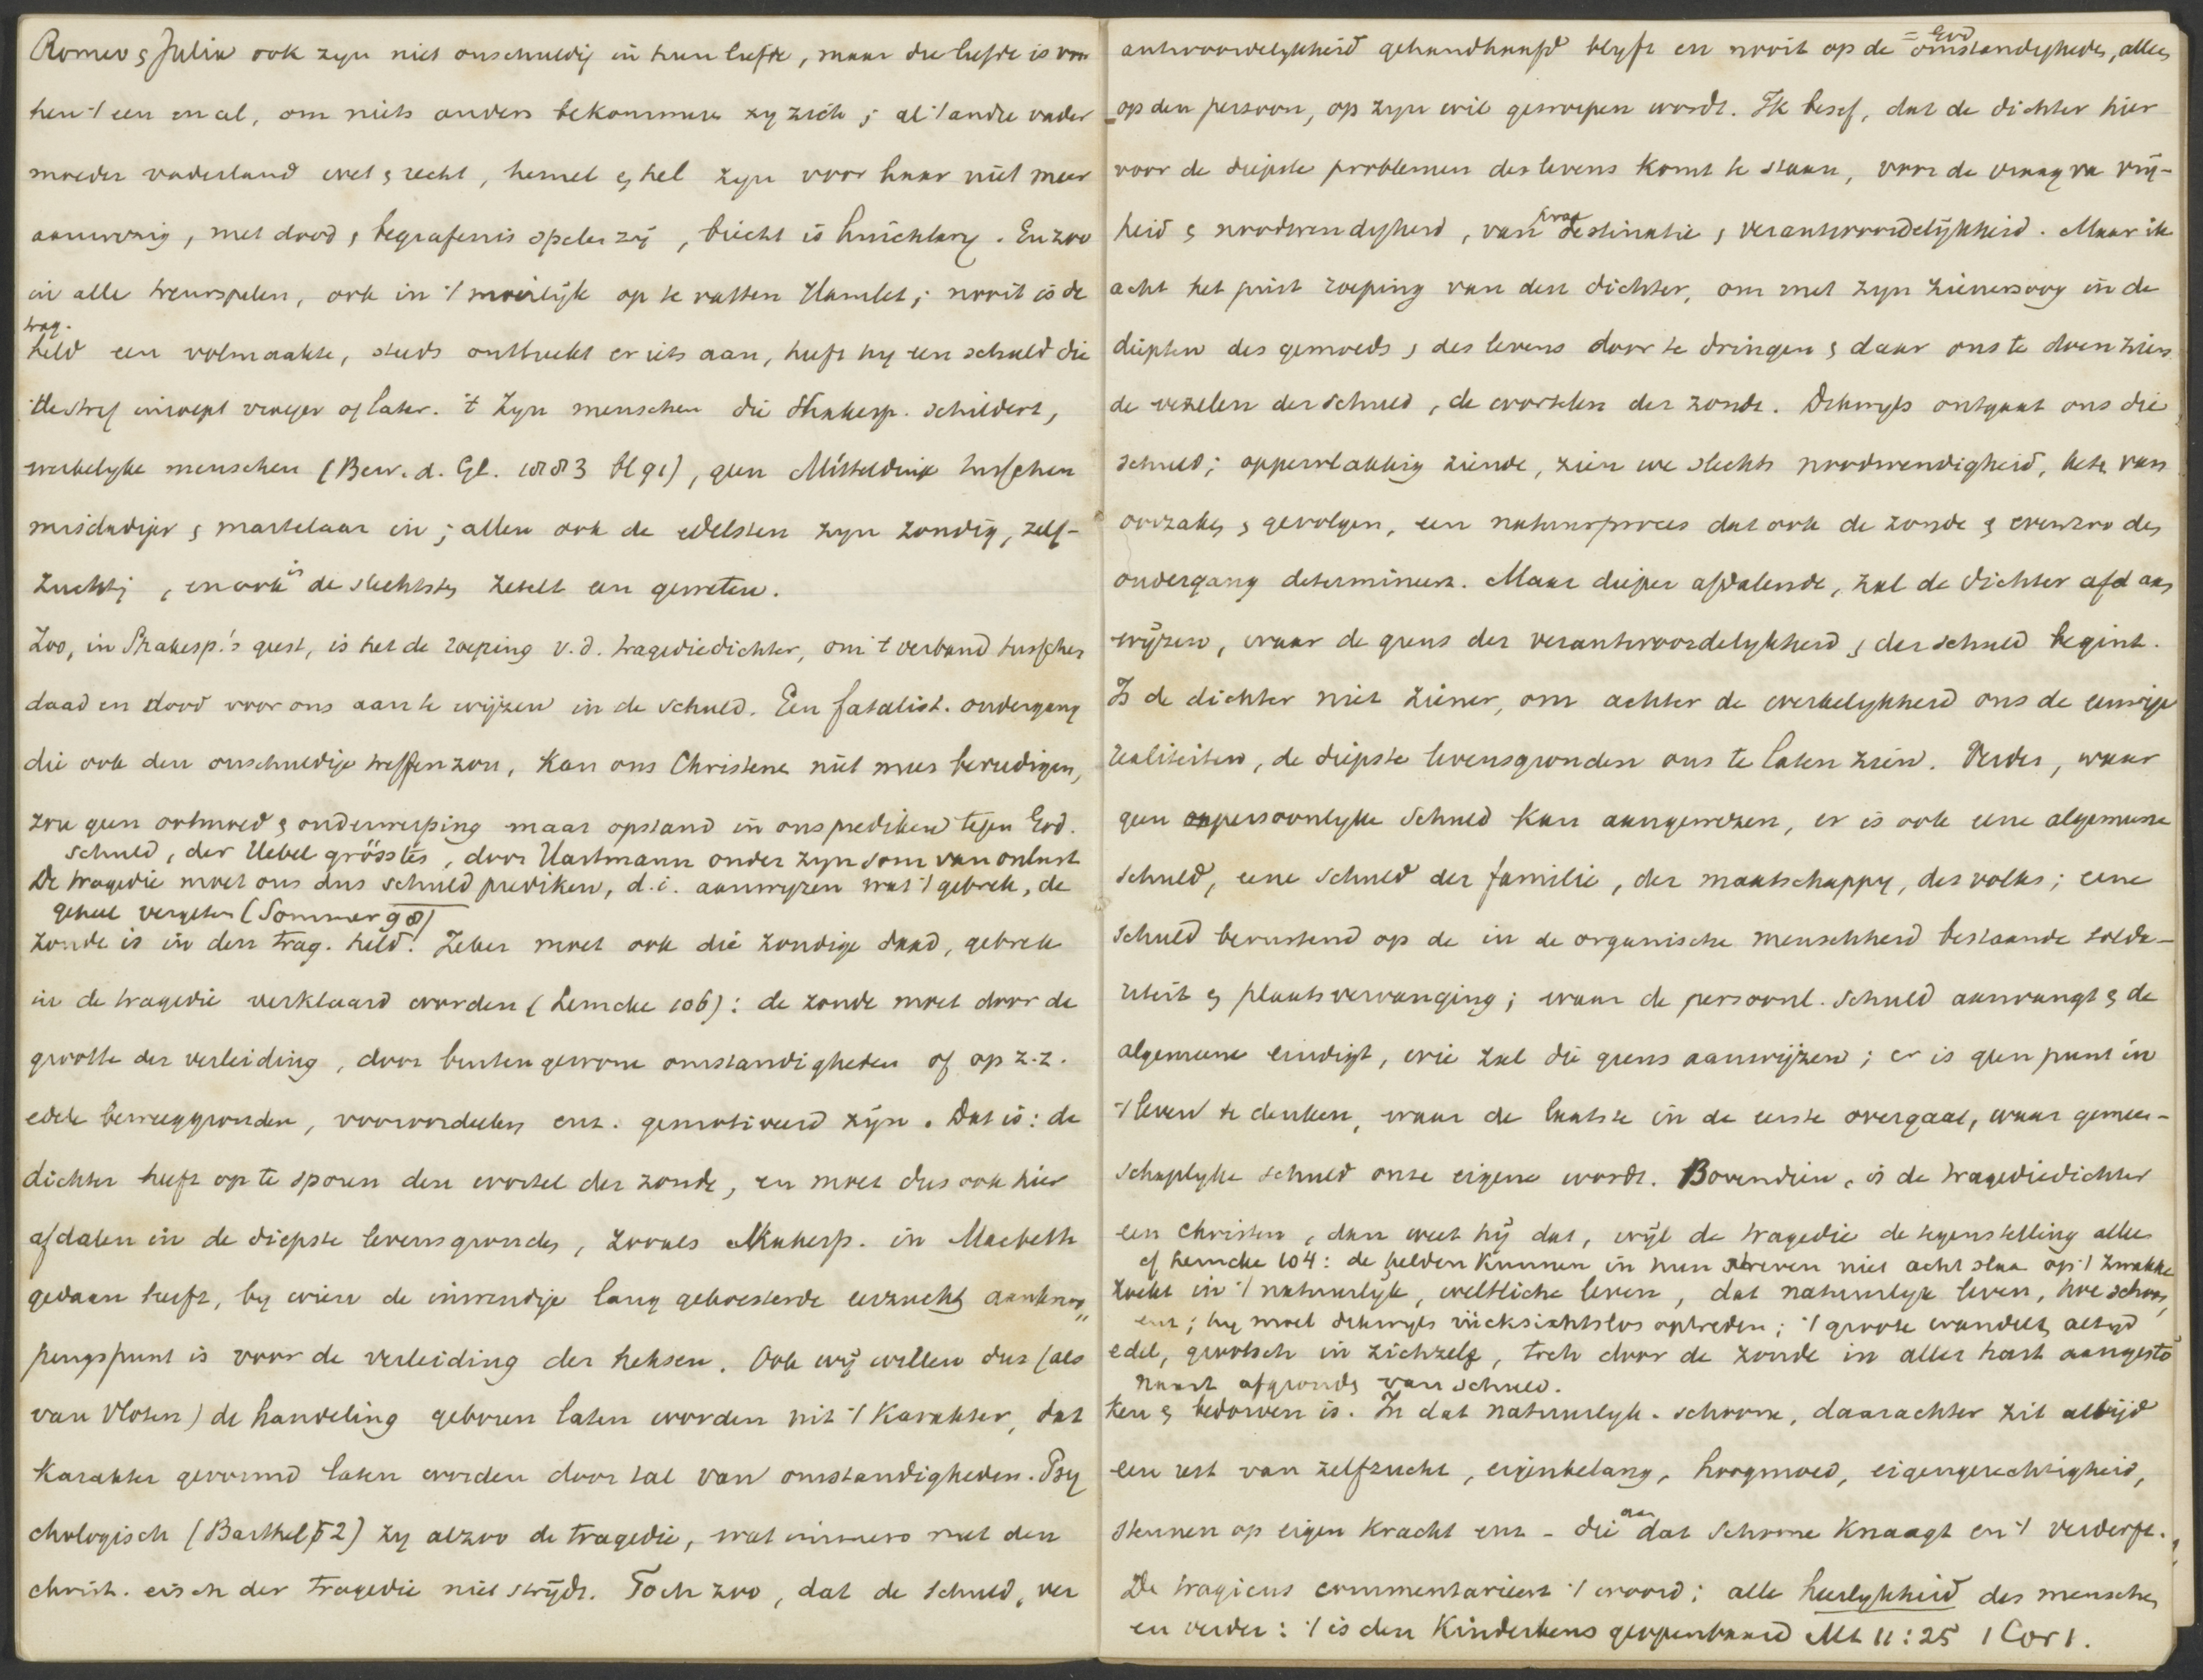 Romeo & Julia ook zyn niet onschuldig in hun liefde, maar die liefde is voor
hen 't een en al, om niets anders bekommeren zy zich; al 't andre vader
moeder vaderland wet & recht, hemel & hel zyn voor haar niet meer
aanwezig, met dood & begrafenis spelen zij, biecht is huichlary. En zoo
in alle treurspelen, ook in 't moeielijk op te vatten Hamlet; nooit is de
trag.
held een volmaakte, steeds ontbreekt er iets aan, heeft hy een schuld die
de straf inroept vroeger of later. 't Zyn menschen die Shakesp. schildert,
werkelyke menschen (Bew. d. Gl. 1883 bl 91), geen Mittelding tusschen
misdadiger & martelaar in; allen ook de edelsten zyn zondig, zelf-
zuchtig, en ook in de slechtsten zetelt een geweten.
Zoo, in Shakesp.'s geest, is het de roeping v.d. tragediedichter, om 't verband tusschen
daad en dood voor ons aan te wijzen in de schuld. Een fatalist. ondergang
die ook den onschuldige treffen zou, kan ons Christenen niet meer bevredigen,
zou geen ootmoed & onderwerping maar opstand in ons prediken tegen God.
schuld, der Uebel grösstes, door Hartmann onder zyn som van onlust
De tragedie moet ons dus schuld prediken, d.i. aanwyzen wat 't gebrek, de
geheel vergeten (Sommer 98)
zonde is in den trag. held. Zeker moet ook die zondige daad, gebrek
in de tragedie verklaard worden (Lemcke 106): de zonde moet door de
grootte der verleiding, door buitengewone omstandigheden of op z.z.
edele beweeggronden, vooroordeelen enz. gemotiveerd zijn. Dat is: de
dichter heeft op te sporen den wortel der zonde, en moet dus ook hier
afdalen in de diepste levensgronden, zooals Shakesp. in Macbeth
gedaan heeft, by wien de inwendige lang gekoesterde eerzucht aanknoo„
pingspunt is voor de verleiding der heksen. Ook wij willen dus (als
van Vloten) de handeling geboren laten worden uit 't karakter, dat
karakter gevormd laten worden door tal van omstandigheden. Psy
chologisch (Barthel 52) zy alzoo de tragedie, wat immers met den
christ. eisch der tragedie niet strijdt. Toch zoo, dat de schuld, ver
= God
antwoordelykheid gehandhaafd blyft en nooit op de omstandigheden, alles
op den persoon, op zyn wil geworpen wordt. Ik besef, dat de dichter hier
voor de diepste problemen des levens komt te staan, voor de vraag van vrij-
heid & noodwendigheid, van praedestinatie & verantwoordelijkheid. Maar ik
acht het juist roeping van den dichter, om met zyn zienersoog in de
diepten des gemoeds & des levens door te dringen & daar ons te doen zien
de vezelen der schuld, de wortelen der zonde. Dikwyls ontgaat ons die
schuld; oppervlakkig ziende, zien we slechts noodwendigheid, keten van
oorzaken & gevolgen, een natuurproces dat ook de zonde & evenzoo den
ondergang determineert. Maar dieper afdalende, zal de dichter ons
wijzen, waar de grens der verantwoordelykheid & der schuld begint.
Is de dichter niet ziener, om achter de werkelykheid ons de eeuwige
realiteiten, de diepste levensgronden ons te laten zien. Verder, waar
geen persoonlyke schuld kan aangewezen, er is ook eene algemeene
schuld, eene schuld der familie, der maatschappy, des volks; eene
schuld berustend op de in de organische menschheid bestaande solida-
riteit & plaatsvervanging; waar de persoonl. schuld aanvangt & de
algemeene eindigt, wie zal die grens aanwijzen; er is geen punt in
't leven te denken, waar de laatste in de eerste overgaat, waar gemeen-
schaplyke schuld onze eigene wordt. Bovendien, is de tragediedichter
een christen, dan weet hij dat, wijl de tragedie de tegenstelling alleen
cf Lemcke 104: de helden kunnen in hun streven niet acht slaan op 't zwakke
zoekt in 't natuurlijk, weltliche leven, dat natuurlijk leven, hoe schoon,
enz; hy moet dikwyls rücksichtslos optreden; 't groote wandelt altyd
edel, grootsch in zichzelf, toch door de zonde in aller hart aangesto
naast afgronden van schuld.
ken & bedorven is. In dat natuurlyk-schoone, daarachter zit altijd
een rest van zelfzucht, eigenbelang, hoogmoed, eigengerechtigheid,
steunen op eigen kracht enz - die aan dat schoone knaagt en 't verderft.
De tragicus commentarieert 't woord: alle heerlykheid des menschen
en verder: 't is den kinderkens geopenbaard Mt 11:25 1 Cor 1.